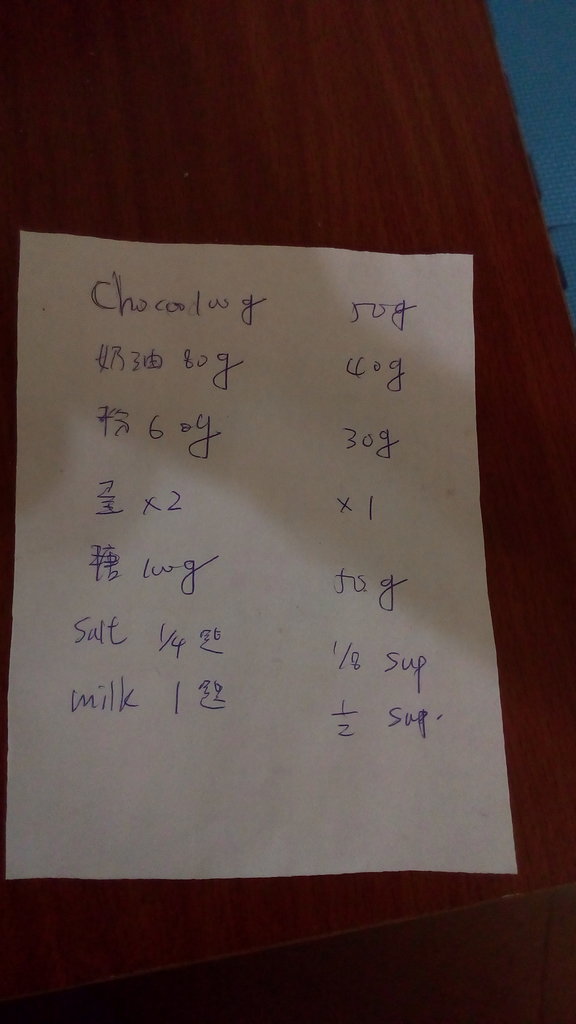 Chocoo 100g 50g
奶油 80g 40g
粉 60g 30g
蛋 x2 x1
糖 100g 50g
Salt 1/4 匙 1/8 sup
milk 1 匙 1/2 sup.